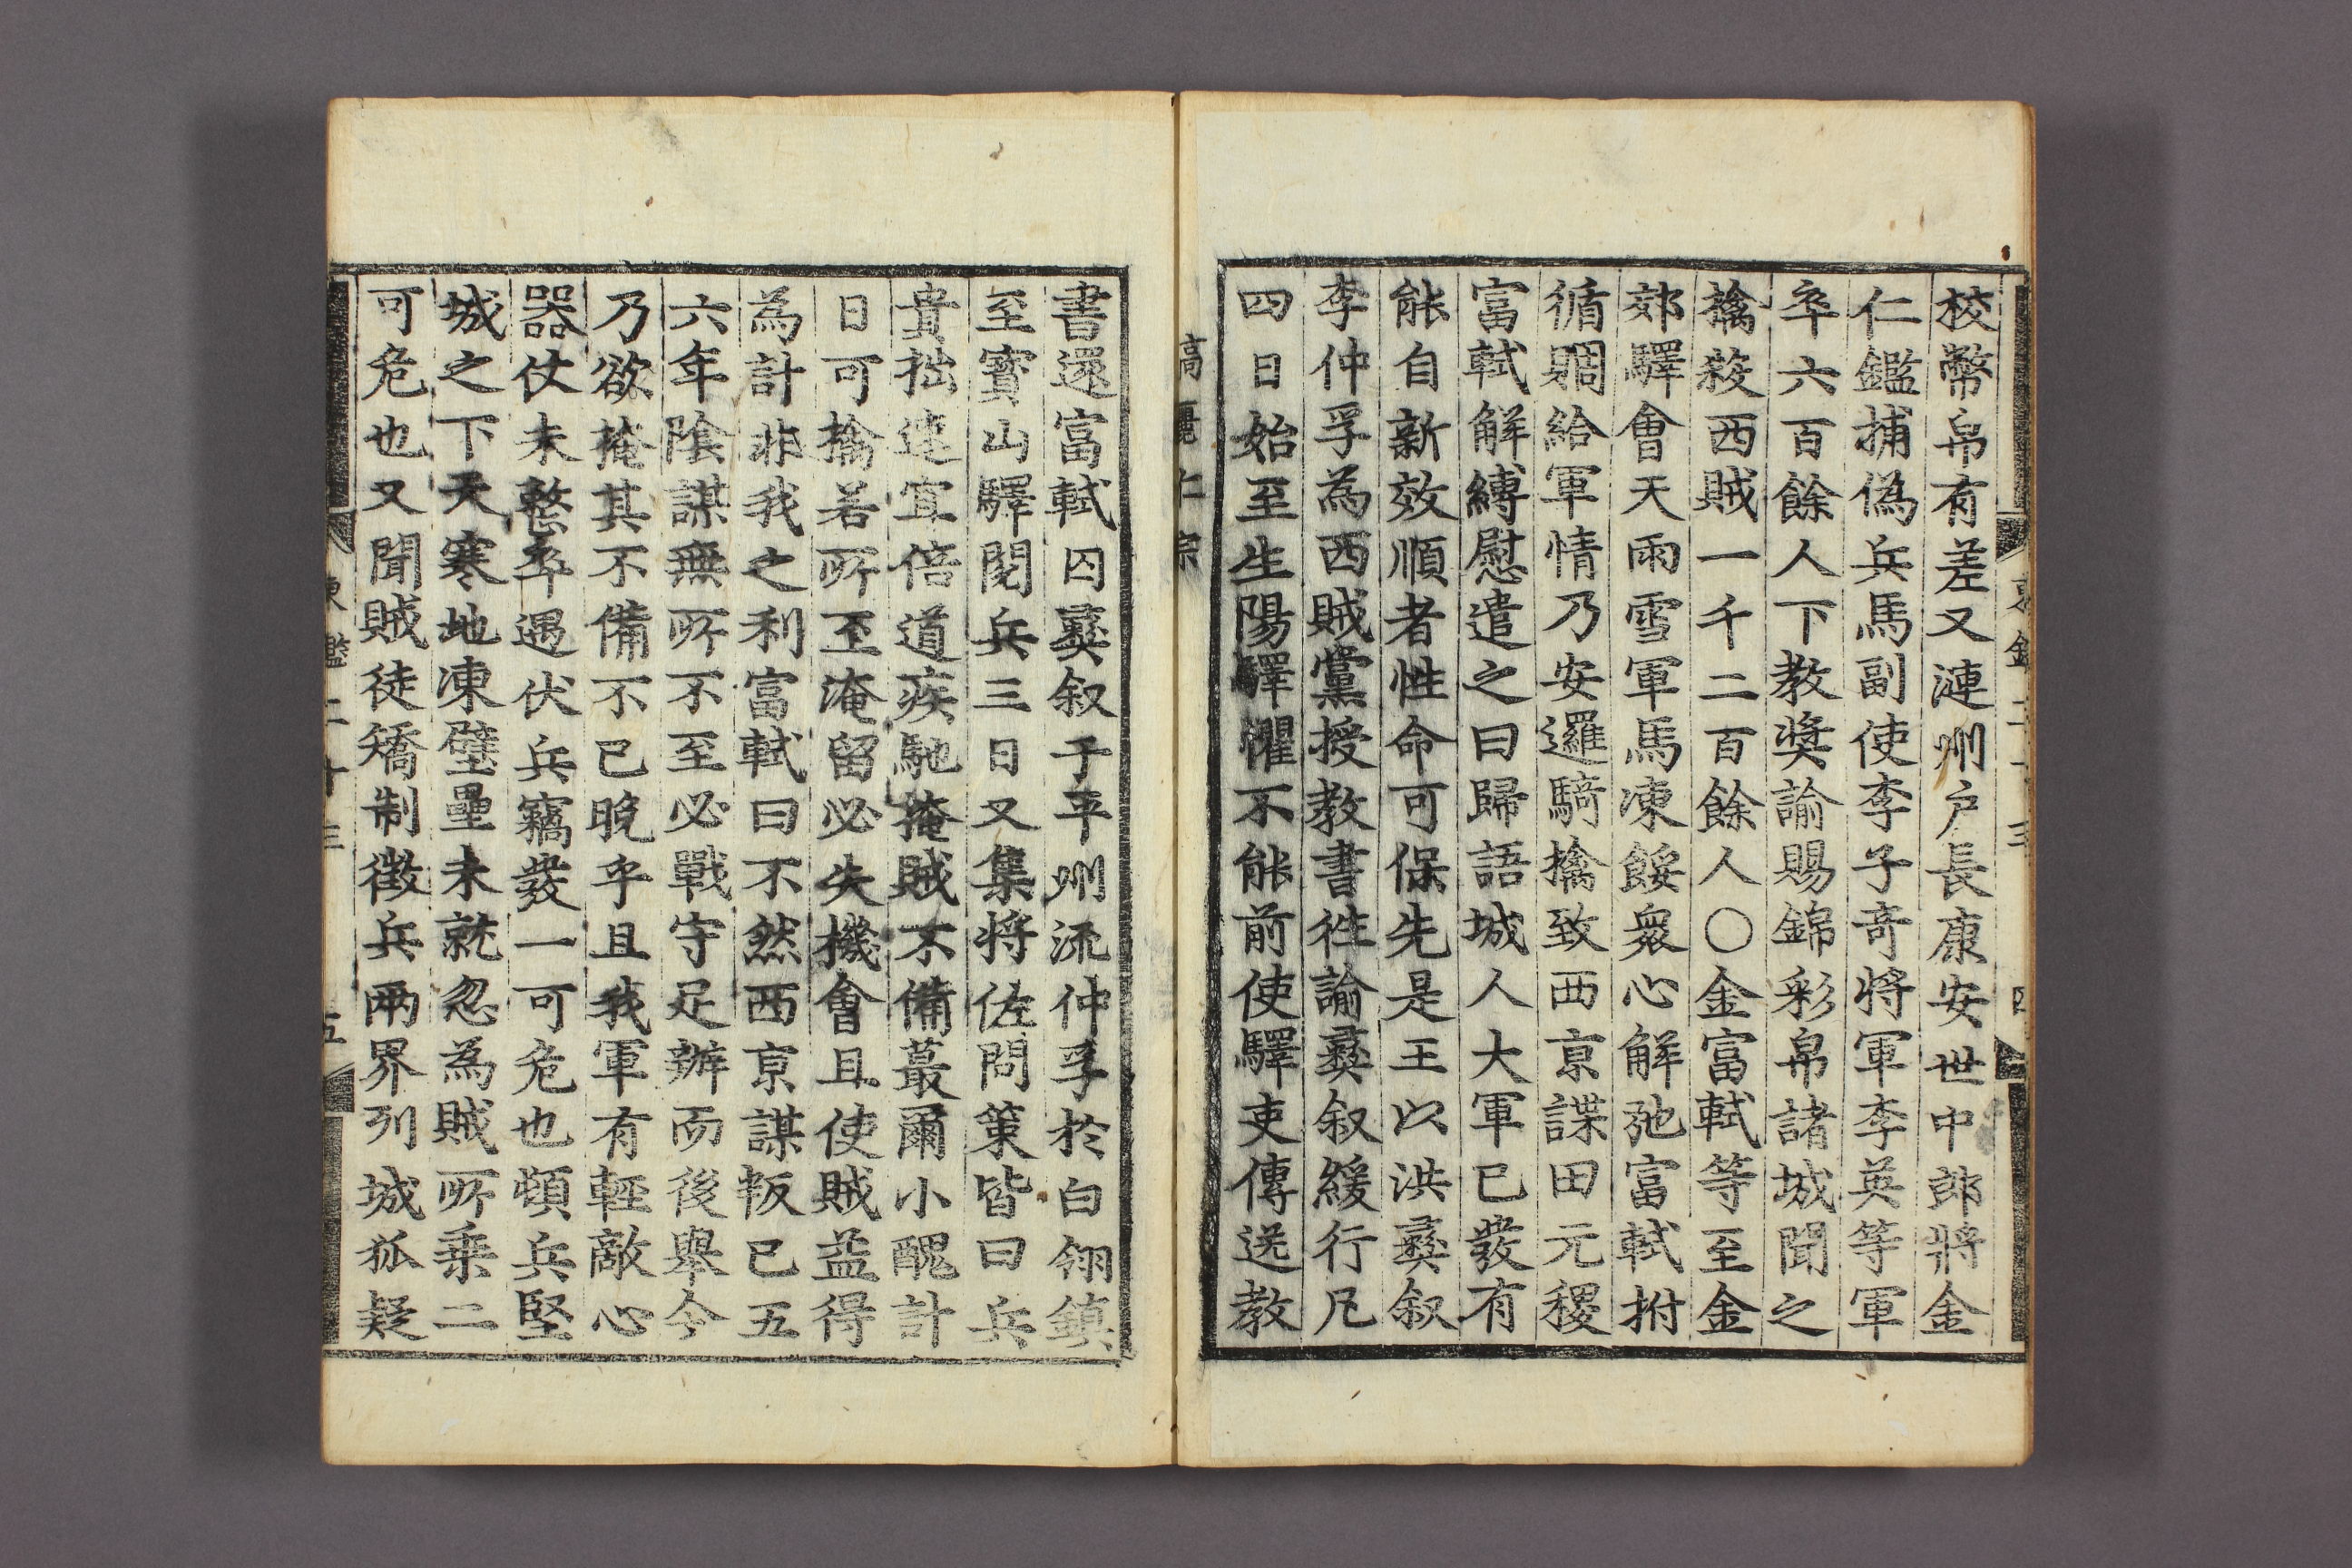 校幣帛有差又漣州戶長康安世中郎將金
仁鑑捕偽兵馬副使李子奇將軍李英等軍
卒六百餘人下教奬諭賜錦彩帛諸城聞之
擒殺西賊一千二百餘人〇金富軾等至金
郊驛會天雨雪軍馬凍餒衆心解弛富軾拊
循賙給軍情乃安邏騎擒致西京諜田元稷
富軾解縛慰遣之曰歸語城人大軍已發有
能自新效順者性命可保先是王以洪彛叙
李仲孚為西賊黨授教書徃諭彛叙緩行凡
四日始至生陽驛懼不能前使驛吏傳送教
高麗仁宗
書還富軾囚彛叙于平州流仲孚於白翎鎮
至寶山驛閱兵三日又集將佐問策皆曰兵
貴拙速宜倍道疾馳掩賊不備蕞爾小醜計
日可擒若所至淹留必失機會且使賊益得
為計非我之利富軾曰不然西京謀叛已五
六年陰謀無所不至必戰守足辦而後舉今
乃欲掩其不備不已晚乎且我軍有輕敵心
器仗未整卒遇伏兵竊發一可危也頓兵堅
城之下天寒地凍壁壘未就忽為賊所乗二
可危也又聞賊徒矯制徴兵兩界列城狐疑
東鑑二十三 五